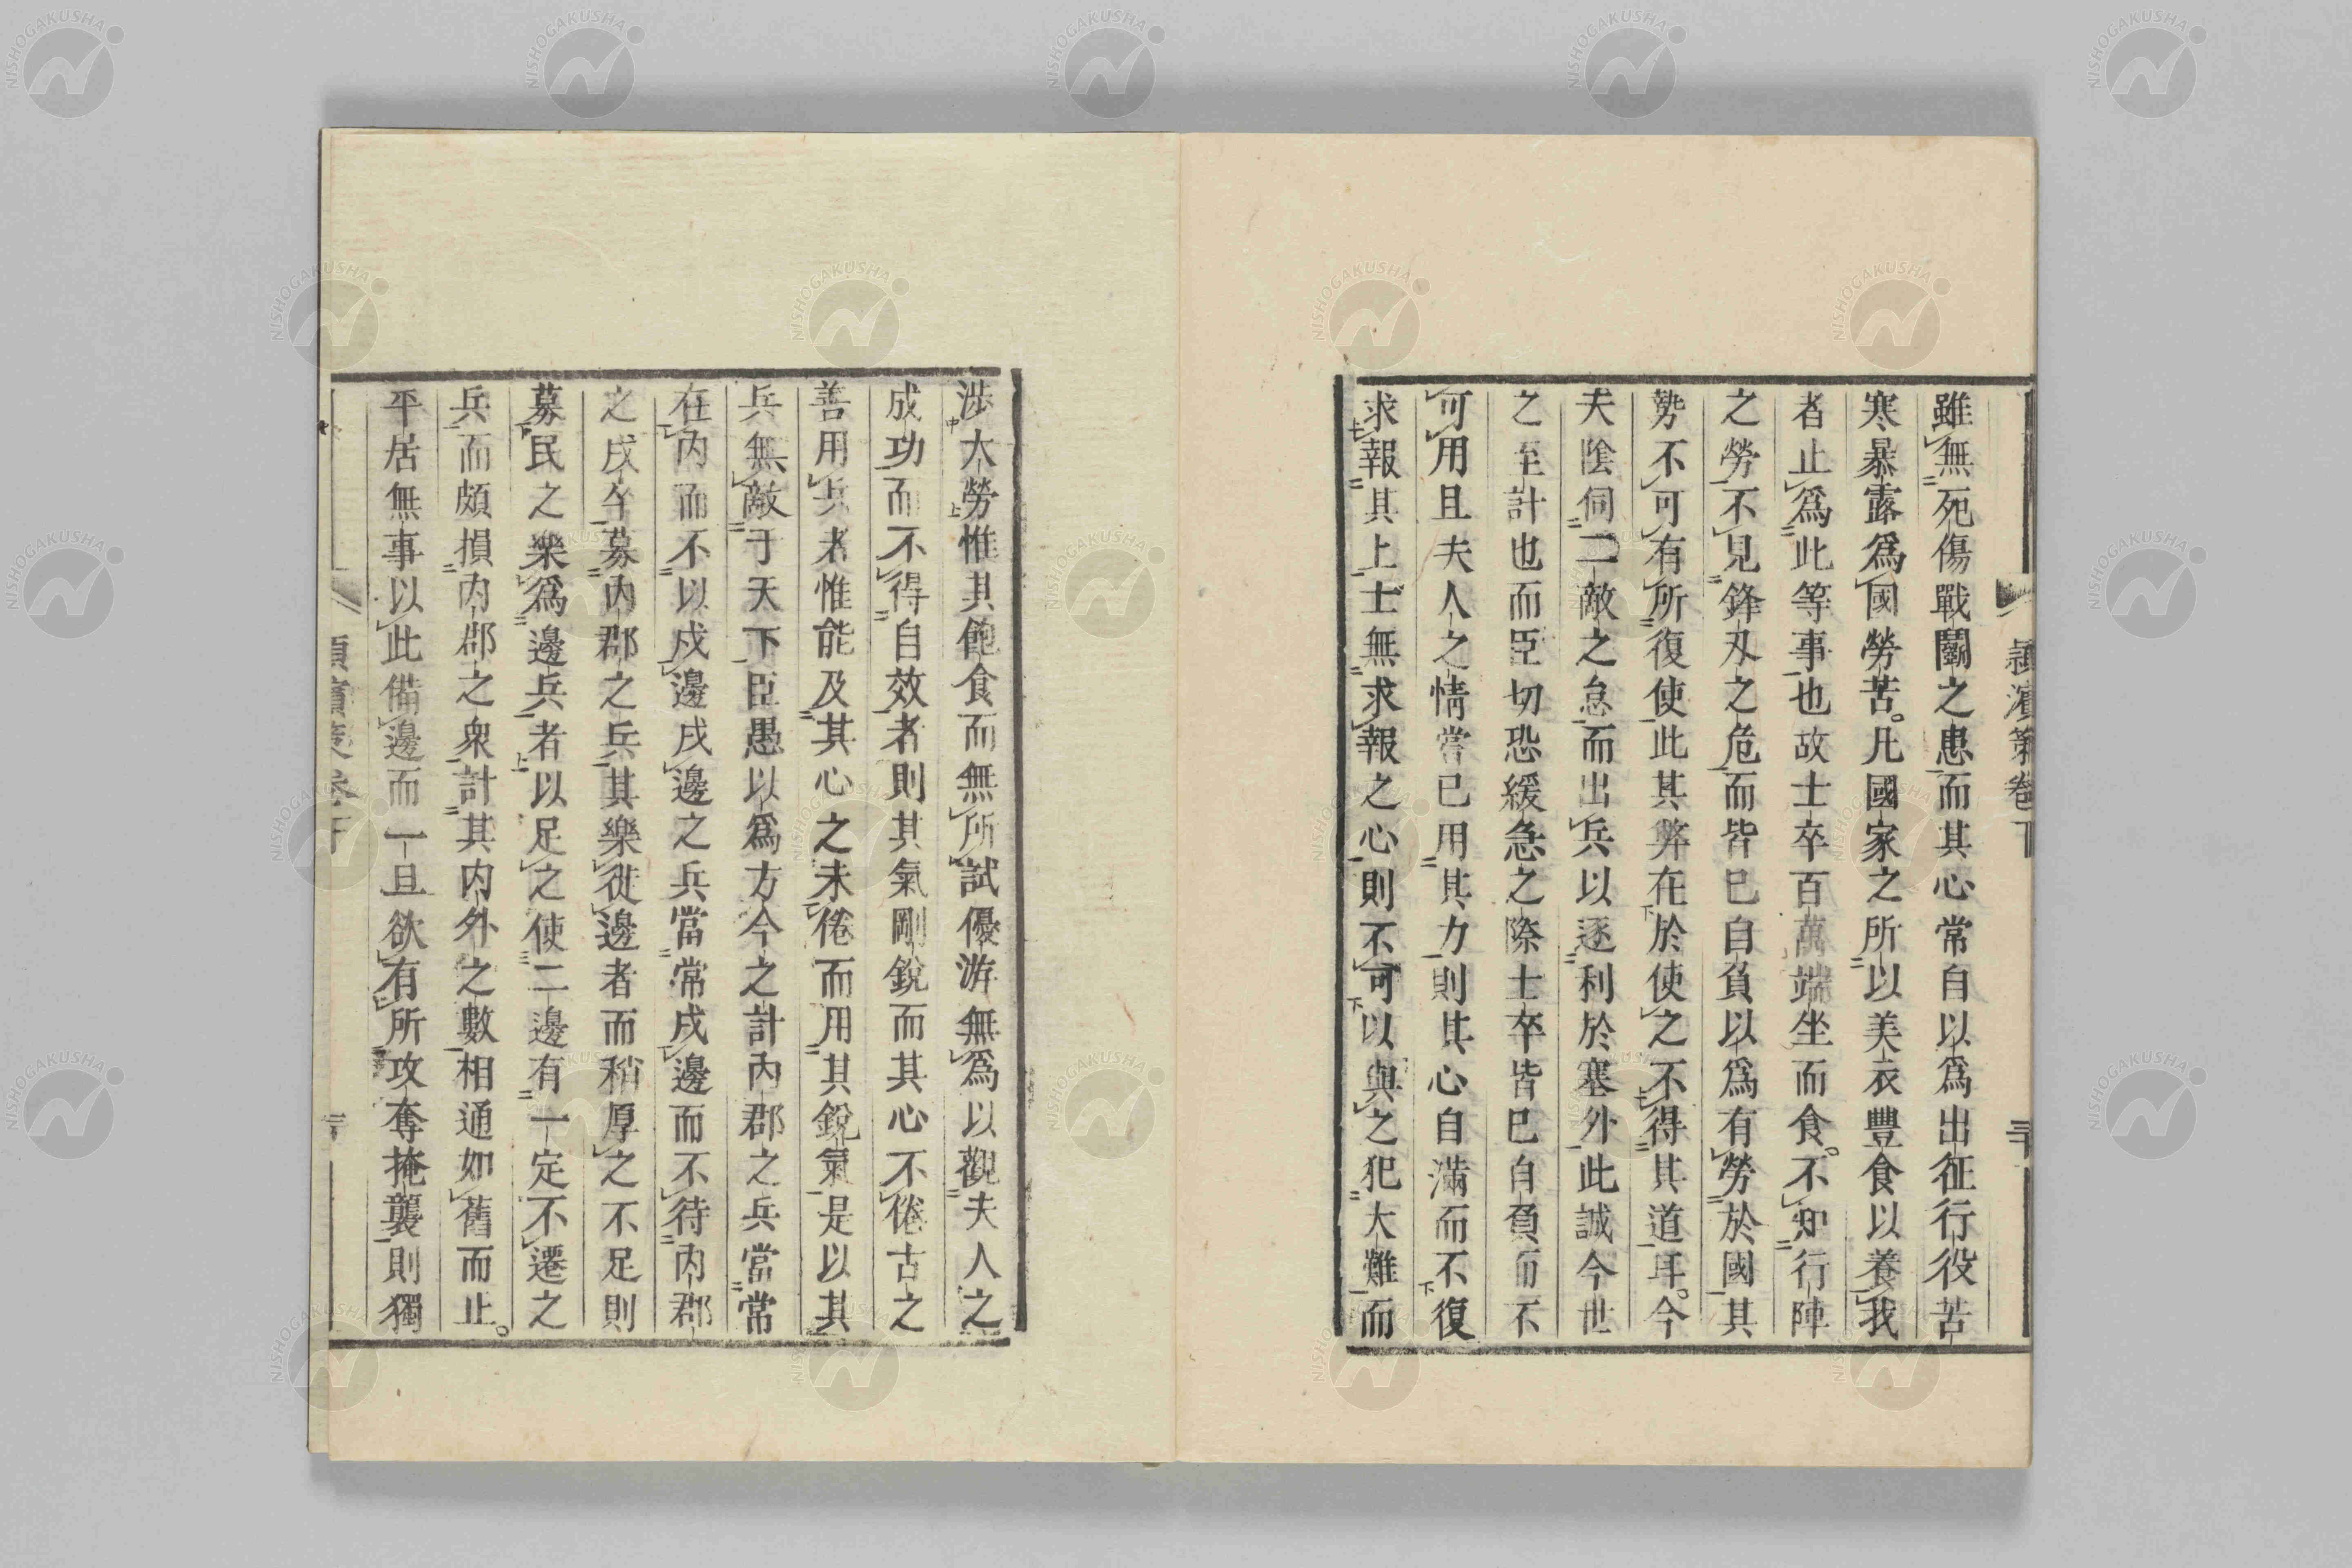 雖無死傷戰鬭之患而其心常自以爲出征行役苦
寒暴露爲國勞苦。凡國家之所以美衣豐食以養我
者止爲此等事也故士卒百萬端坐而食。不知行陣
之勞不見鋒刄之危而皆已自負以爲有勞於國其
勢不可有所復使此其弊在於使之不得其道耳。今
夫陰伺二敵之怠而出兵以逐利於塞外此誠今世
之至計也而臣切恐緩急之際士卒皆已自負而不
可用且夫人之情嘗已用其力則其心自滿而不復
求報其上士無求報之心則不可以與之犯大難而
潁濱策卷下
三十
涉大勞惟其飽食而無所試優游無爲以觀夫人之
成功而不得自效者則其氣剛銳而其心不倦古之
善用兵者惟能及其心之未倦而用其銳氣是以其
兵無敵于天下臣愚以爲方今之計內郡之兵當常
在內而不以戍邊戍邊之兵當常戍邊而不待內郡
之戍卒募內郡之兵其樂徙邊者而稍厚之不足則
募民之樂爲邊兵者以足之使二邊有一定不遷之
兵而頗損內郡之衆計其內外之數相通如舊而止。
平居無事以此備邊而一旦欲有所攻奪掩襲則獨
NISHOGAKUSHA